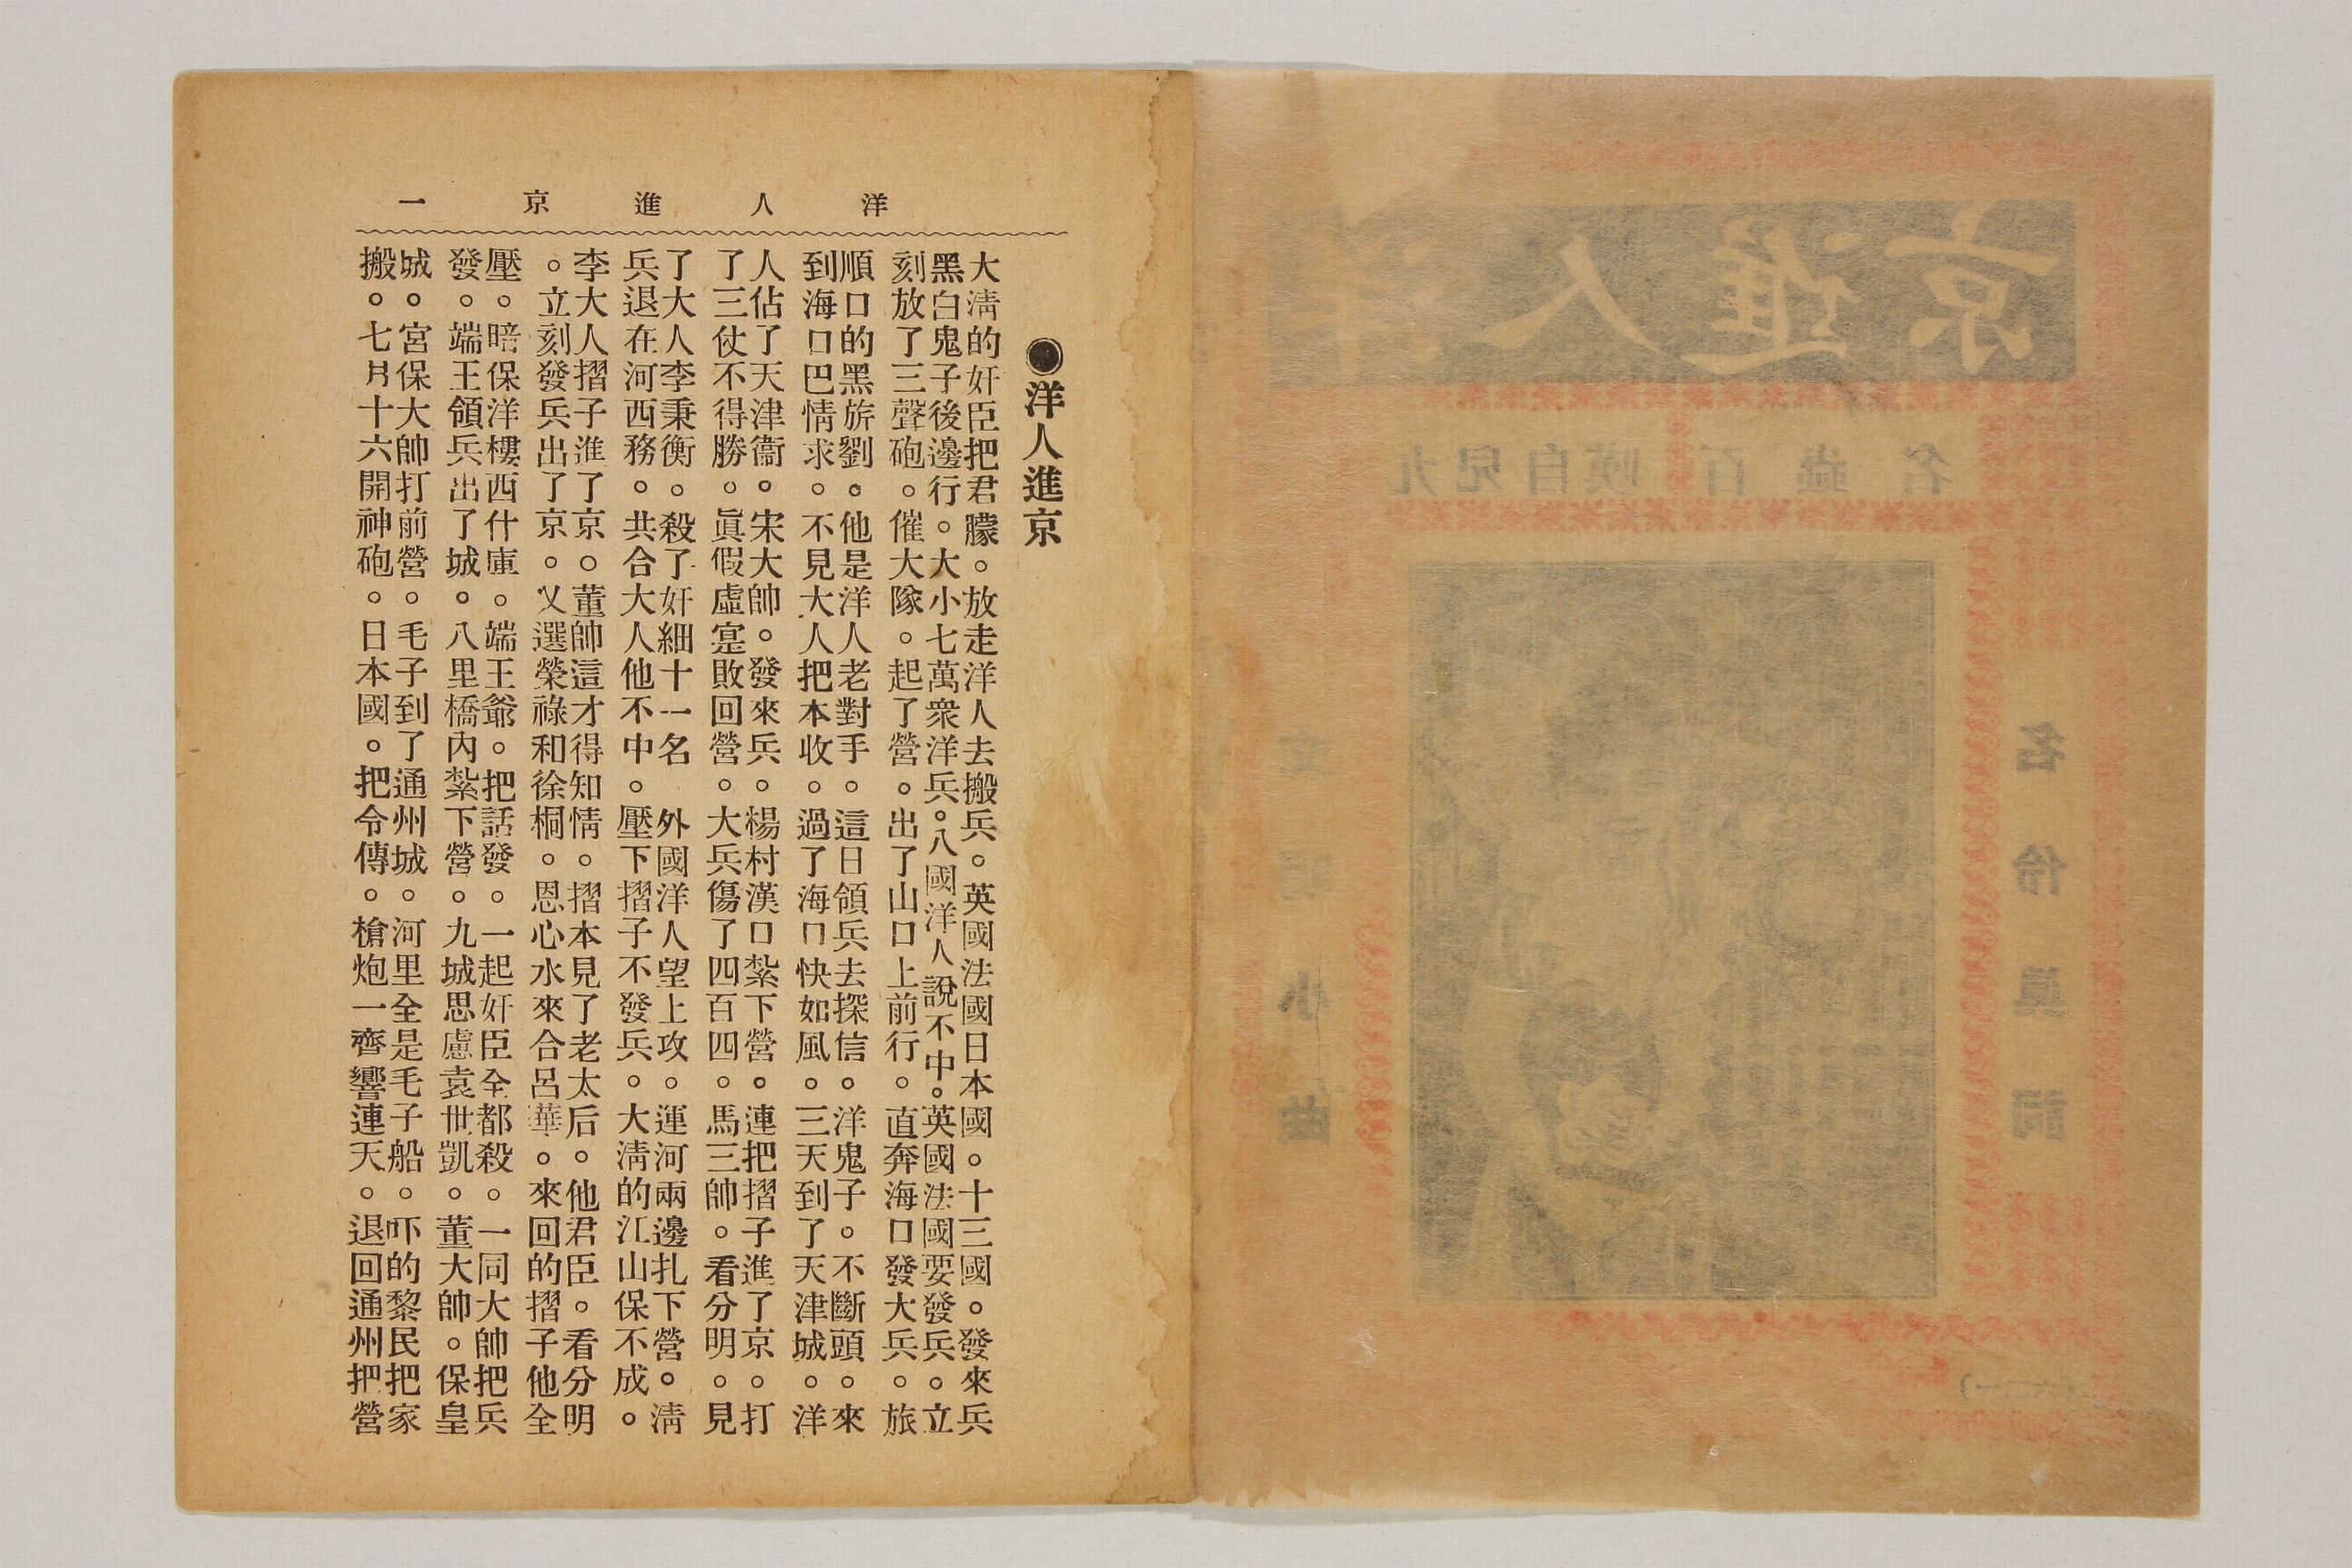 洋人進京 一
●洋人進京
大淸的奸臣把君矇。放走洋人去搬兵。英國法國日本國。十三國。發來兵
黑白鬼子後邊行。大小七萬衆洋兵。八國洋人說不中。英國法國要發兵。立
刻放了三聲砲。催大隊。起了營。出了山口上前行。直奔海口發大兵。旅
順口的黑旂劉。他是洋人老對手。這日領兵去探信。洋鬼子。不斷頭。來
到海口巴情求。不見大人把本收。過了海口快如風。三天到了天津城。洋
人佔了天津衞。宋大帥。發來兵。楊村漢口紮下營。連把摺子進了京。打
了三仗不得勝。眞假虛寔敗回營。大兵傷了四百四。馬三帥。看分明。見
了大人李秉衡。殺了奸細十一名 外國洋人望上攻。運河兩邊扎下營。淸
兵退在河西務。共合大人他不中。壓下摺子不發兵。大淸的江山保不成。
李大人摺子進了京。董帥這才得知情。摺本見了老太后。他君臣。看分明
。立刻發兵出了京。又選榮祿和徐桐。恩心水來合呂華。來回的摺子他全
壓。暗保洋樓西什庫。端王爺。把話發。一起奸臣全都殺。一同大帥把兵
發。端王領兵出了城。八里橋內紮下營。九城思慮袁世凱。董大帥。保皇
城。宮保大帥打前營。毛子到了通州城。河里全是毛子船。吓的黎民把家
搬。七月十六開神砲。日本國。把令傳。槍炮一齊響連天。退回通州把營
人進京
九兒自嘆 百蟲名
名伶眞詞
小曲